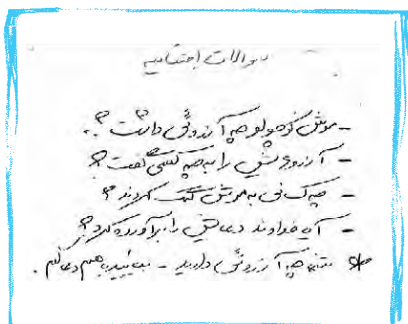 سوالات اختتامیه
- موش کوچولو چه آرزوئی داشت؟
- آرزویش را به چه کسی گفت؟
- چه کسانی به موش کمک کردند؟
- آیا خداوند دعایش را برآورده کرد؟
* شما چه آرزوئی دارید - بیائید باهم دعا کنیم.